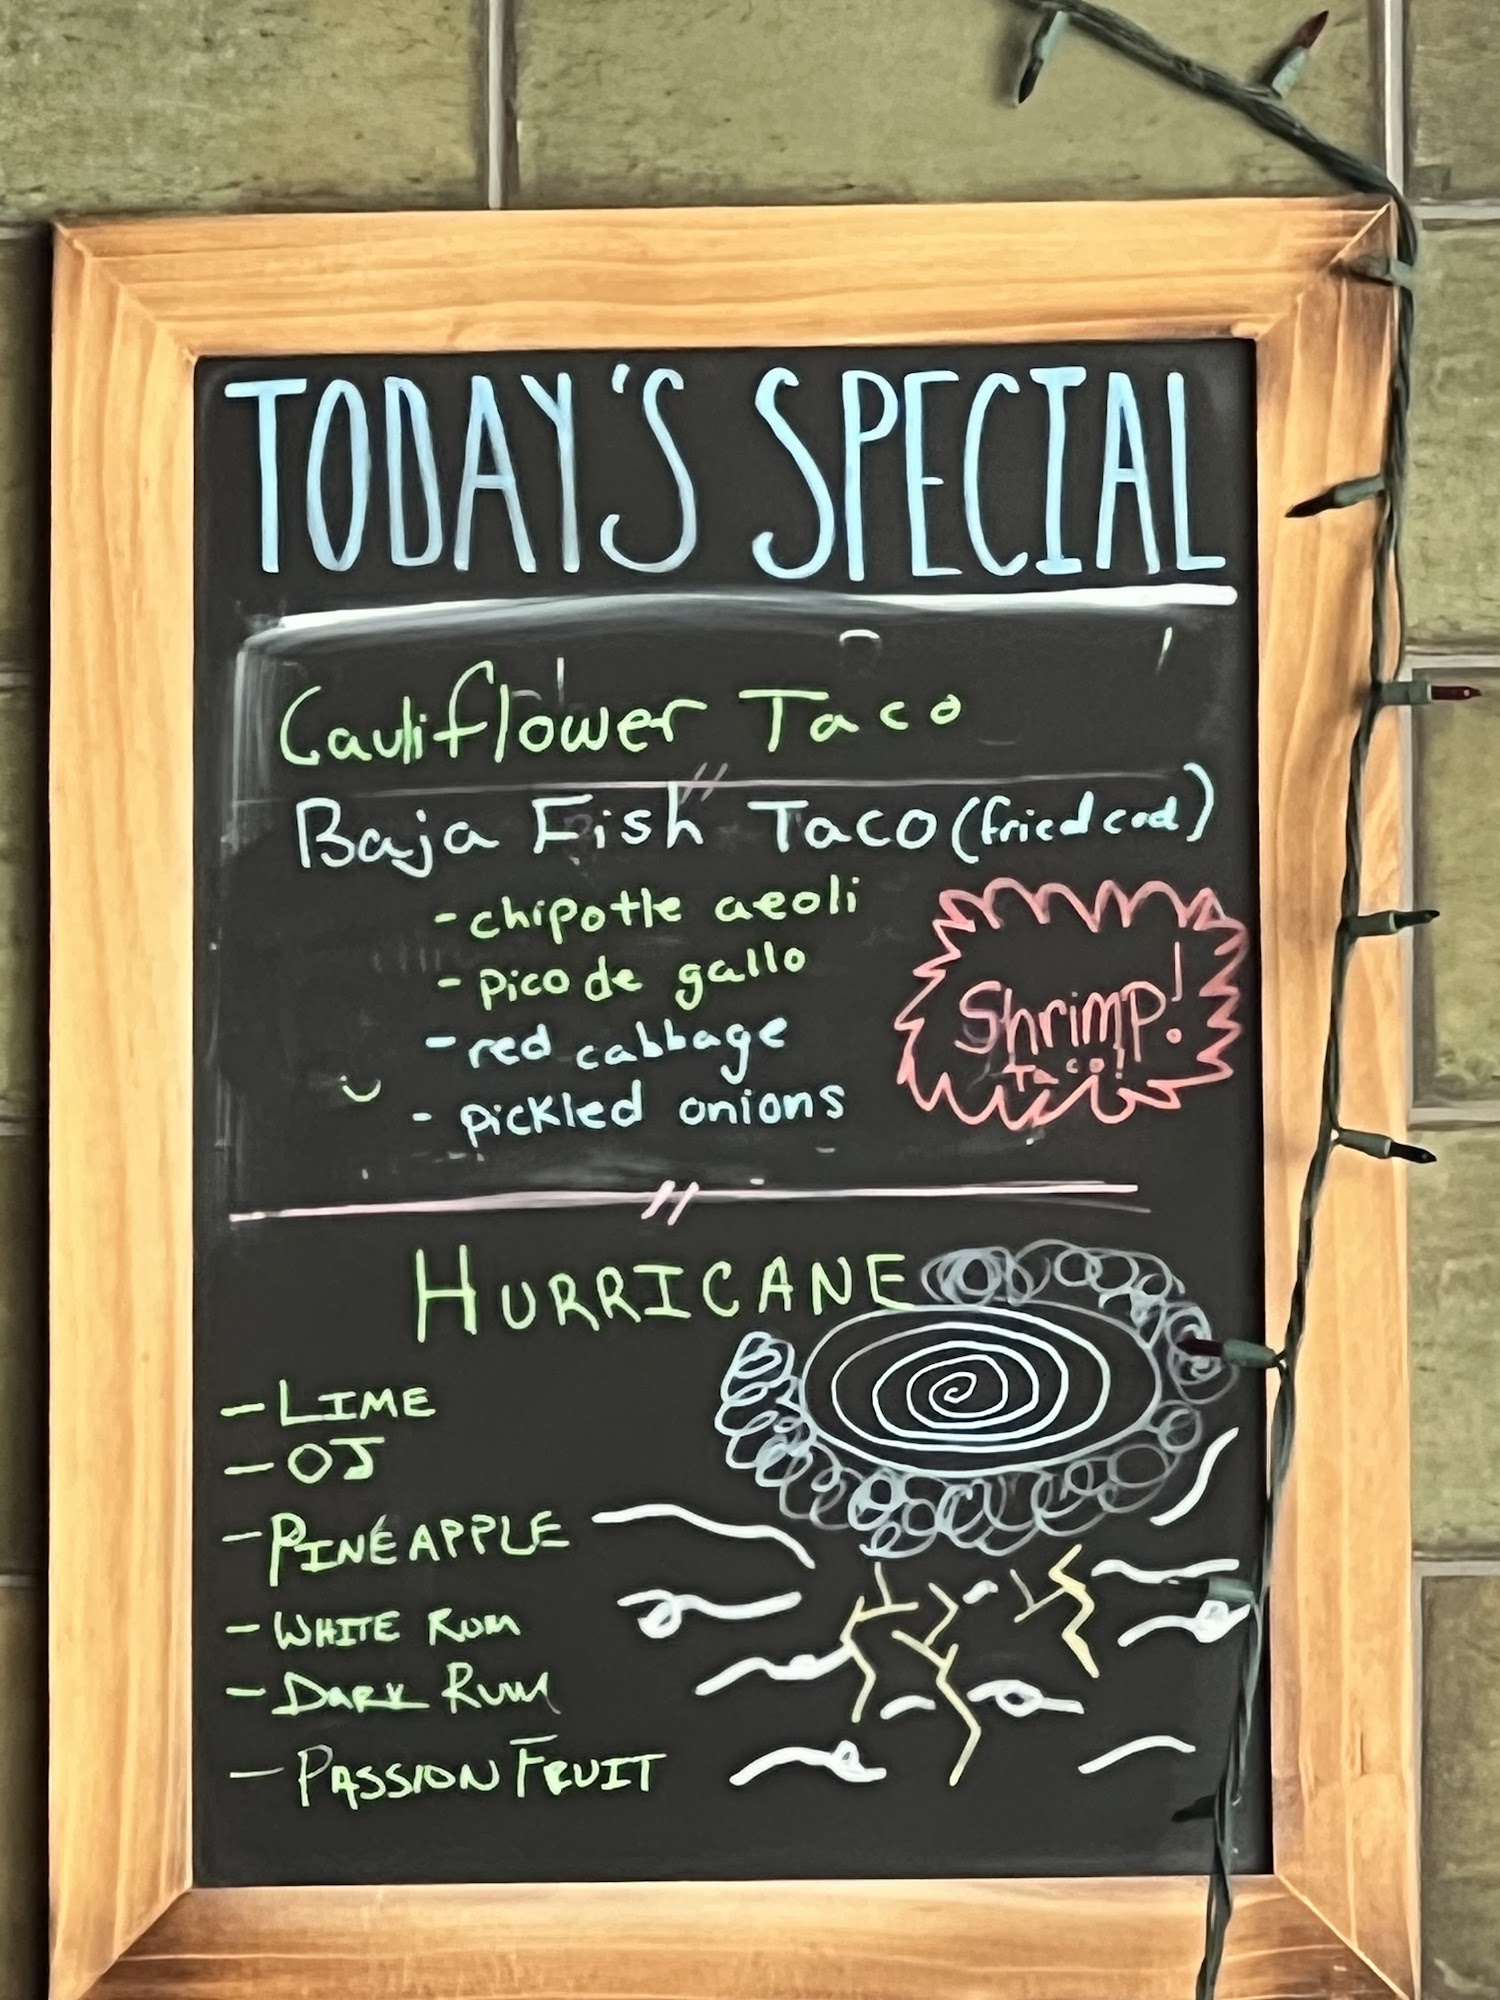 TODAY'S SPECIAL
Cauliflower Taco
Baja Fish Taco (fried cod)
- chipotle aeoli
- pico de gallo
- red cabbage
- pickled onions
Shrimp!
taco!
HURRICANE
- LIME
- OJ
- PINEAPPLE
- WHITE RUM
- DARK RUM
- PASSION FRUIT